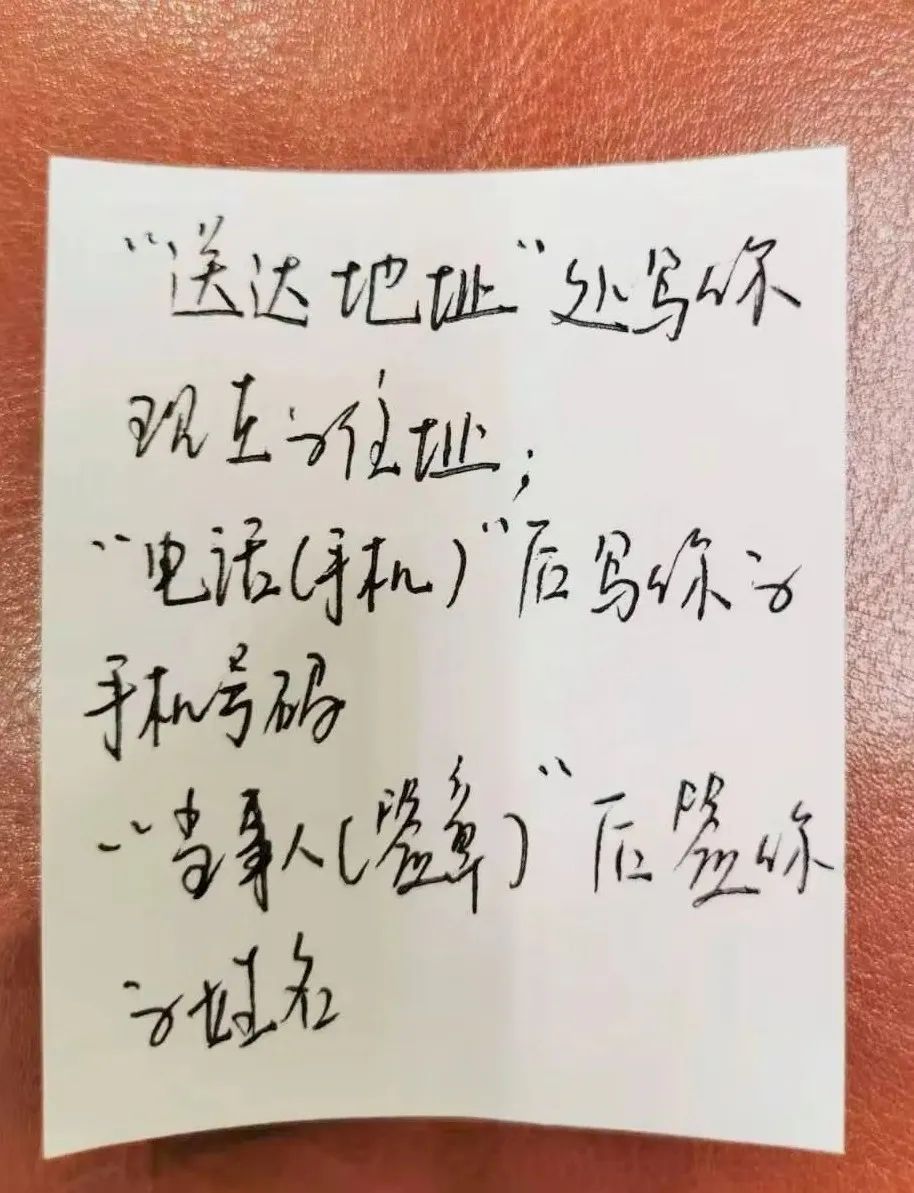 “送达地址”处写你
现在的住址；
“电话(手机)”后写你的
手机号码
“当事人(签章)”后签你
的姓名